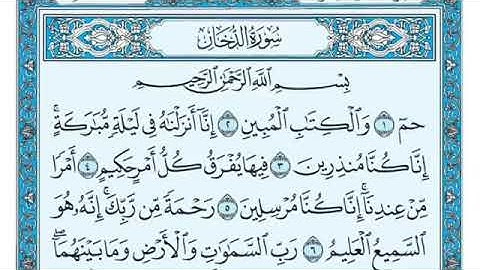 سُورَةُ الدُّخَانِ
بِسْمِ اللَّهِ الرَّحْمَٰنِ الرَّحِيمِ
حمٓ ١ وَالْكِتَابِ الْمُبِينِ ٢ إِنَّآ أَنزَلْنَٰهُ فِى لَيْلَةٍ مُّبَٰرَكَةٍ ۚ
إِنَّا كُنَّا مُنذِرِينَ ٣ فِيهَا يُفْرَقُ كُلُّ أَمْرٍ حَكِيمٍ ٤ أَمْرًا
مِّنْ عِندِنَآ ۚ إِنَّا كُنَّا مُرْسِلِينَ ٥ رَحْمَةً مِّن رَّبِّكَ ۚ إِنَّهُۥ هُوَ
السَّمِيعُ الْعَلِيمُ ٦ رَبِّ السَّمَٰوَٰتِ وَالْأَرْضِ وَمَا بَيْنَهُمَآ ۖ